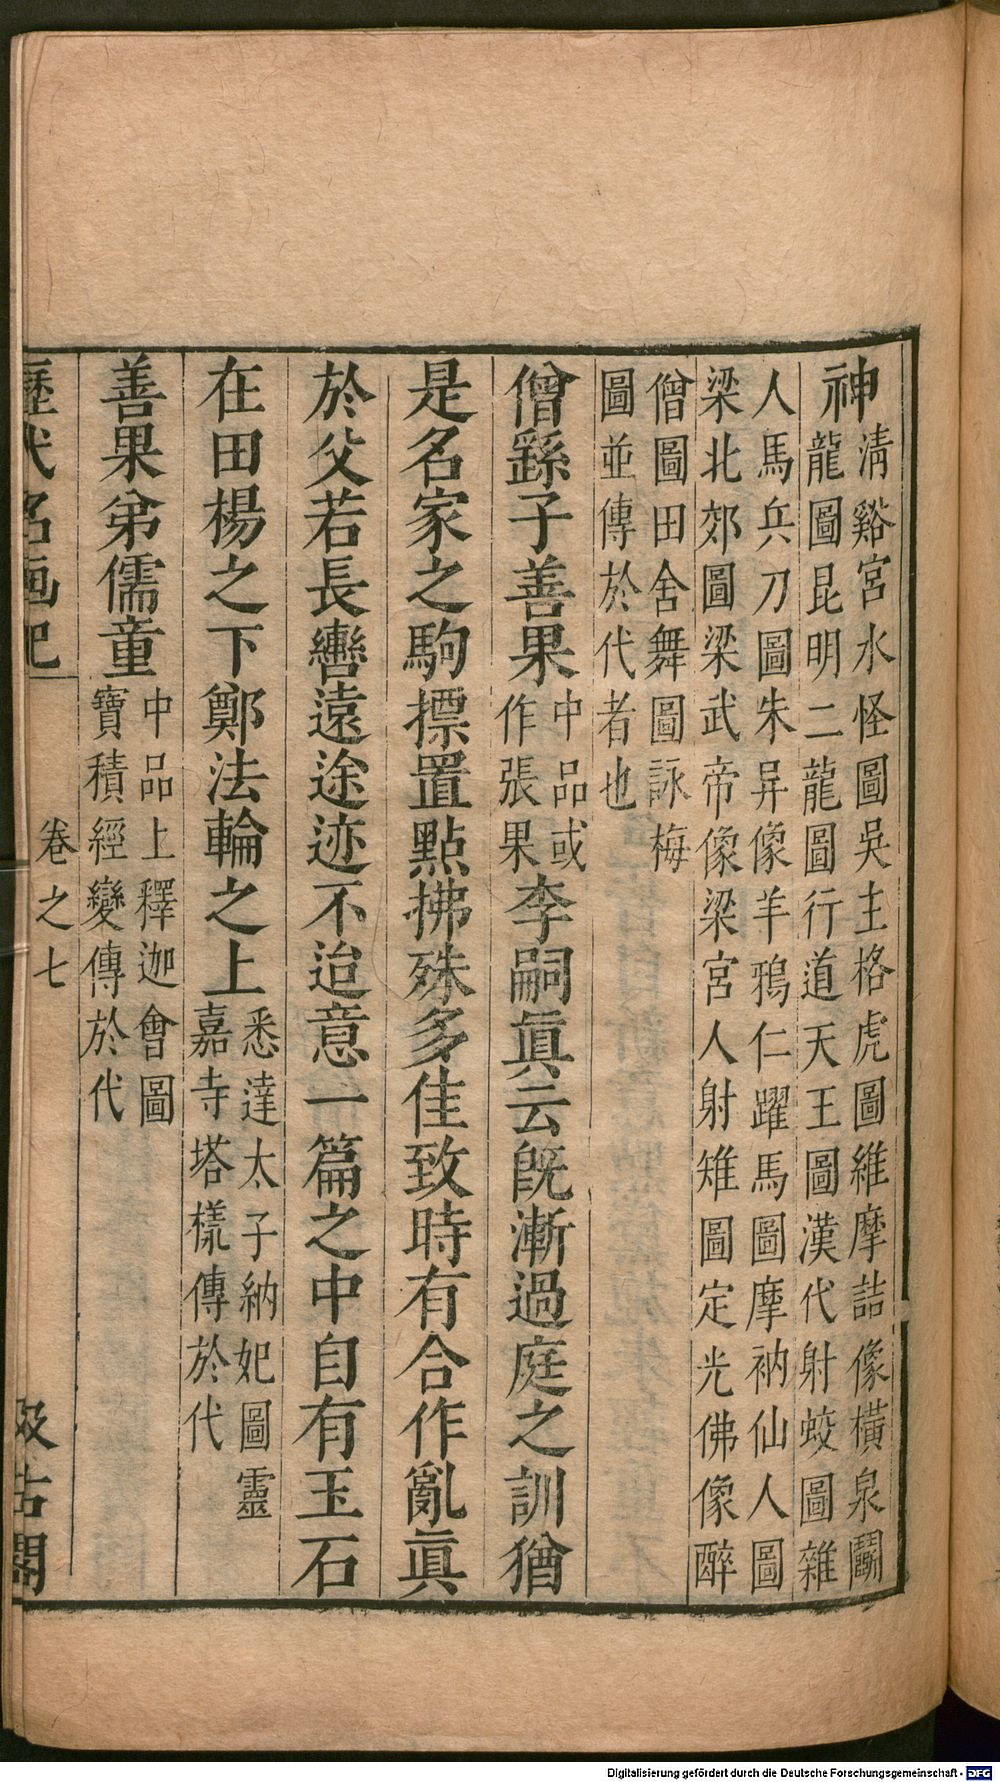 神
清谿宮水怪圖吳主格虎圖維摩詰像橫泉鬬
龍圖昆明二龍圖行道天王圖漢代射蛟圖雜
人馬兵刀圖朱异像羊鴉仁躍馬圖摩衲仙人圖
梁北郊圖梁武帝像梁宮人射雉圖定光佛像醉
僧圖田舍舞圖詠梅
圖並傳於代者也
僧繇子善果
中品或
作張果
李嗣眞云旣漸過庭之訓猶
是名家之駒摽置點拂殊多佳致時有合作亂眞
於父若長轡遠途迹不迨意一篇之中自有玉石
在田楊之下鄭法輪之上
悉達太子納妃圖靈
嘉寺塔樣傳於代
善果弟儒童
中品上釋迦會圖
寶積經變傳於代
歷代名画記 卷之七 汲古閣
Digitalisierung gefördert durch die Deutsche Forschungsgemeinschaft - DFG